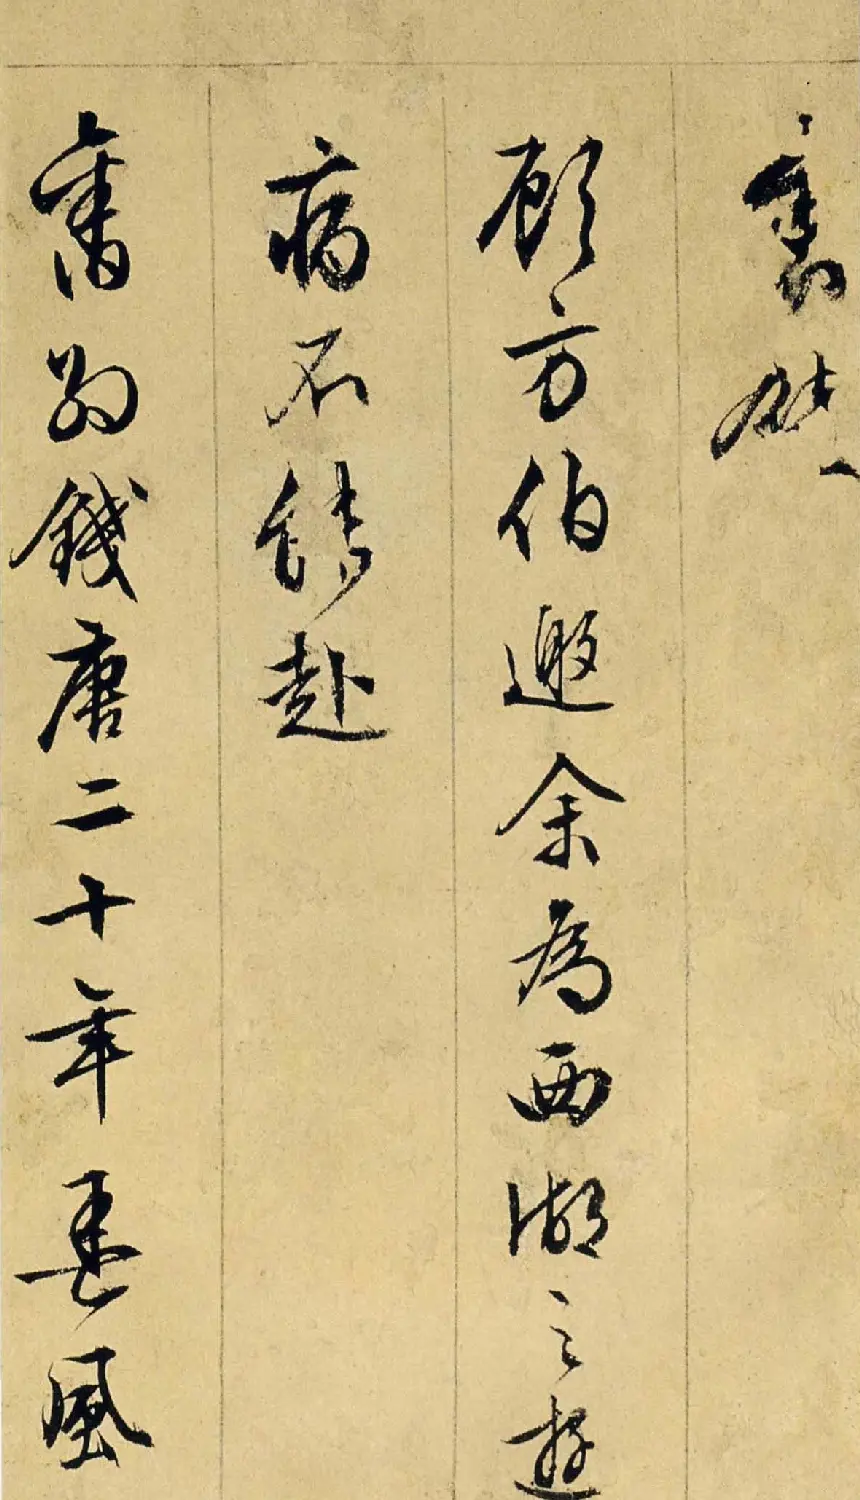 裏
顧方伯邀余為西湖之遊
病不能赴
舊別錢唐二十年春風